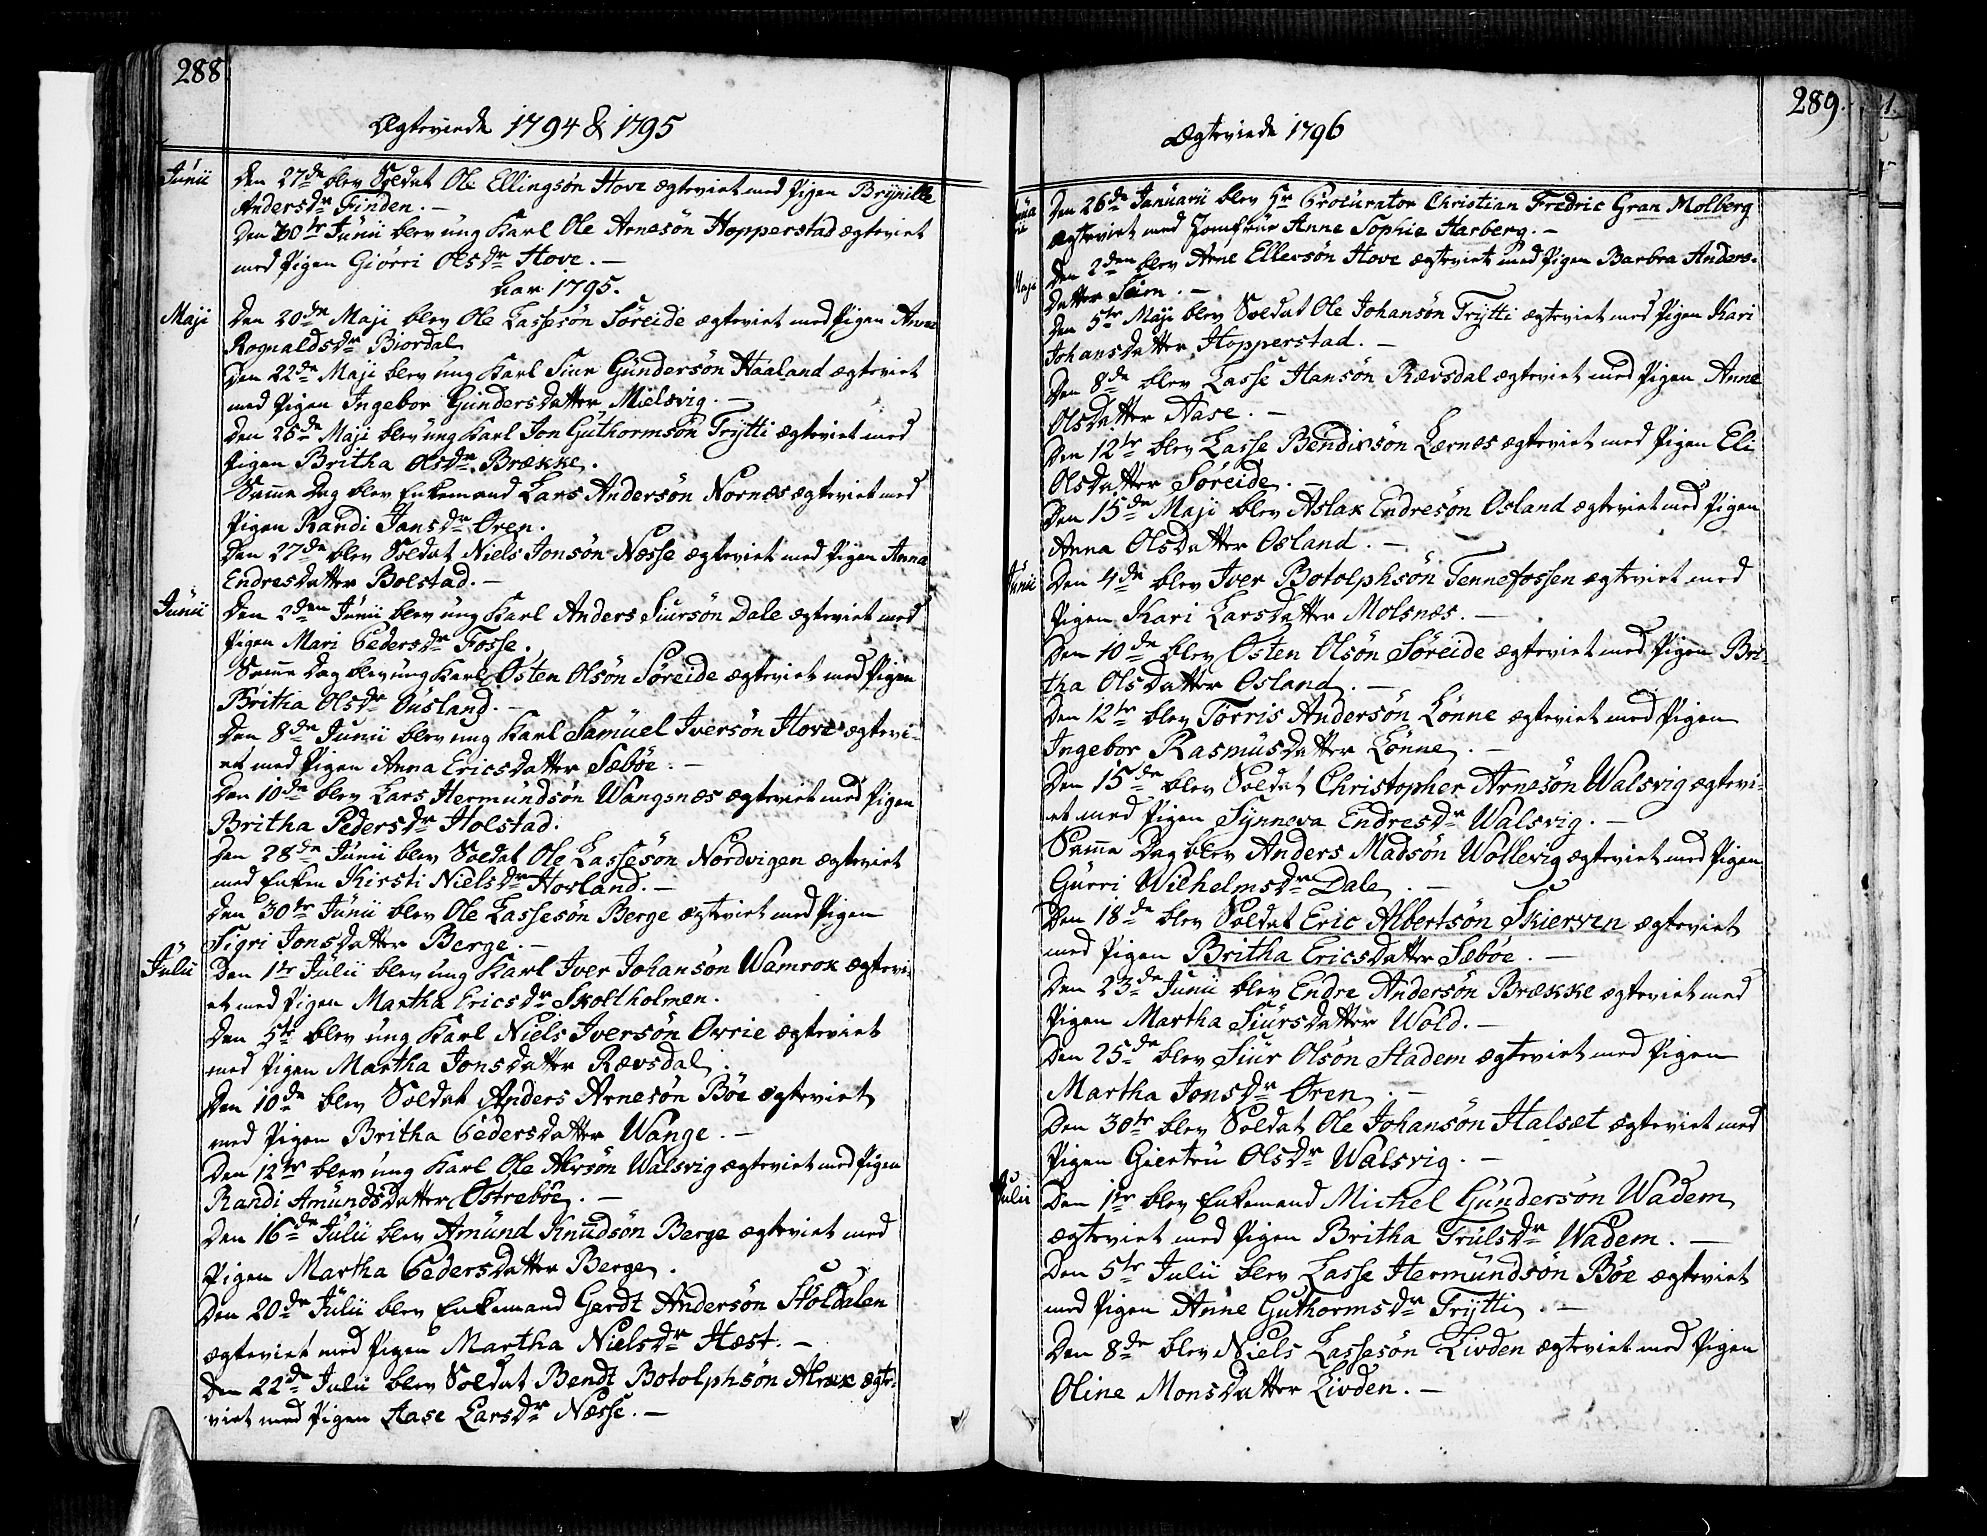 288
Ægteviede 1794 & 1795
Junii
Den 27de blev Soldat Ole Ellingsön Hove ægteviet med Pigen Brynille
Andersdr Finden. -
Den 30te Junii blev ung Karl Ole Arnesön Hopperstad ægteviet
med Pigen Giörri Olsdr Hove. -
1795.
Maji
Den 20de Maji blev Ole Lassesön Söreide ægteviet med Pigen Anna
Rognaldsdr Biordal
Den 22de Maji blev ung Karl Siur Gundersön Haaland ægteviet
med Pigen Ingebor Gundersdatter Mielsvig. -
Den 25de Maji blev ung Karl Jon Guthormsön Trytti ægteviet med
Pigen Britha Olsdr Brække.
Samme Dag blev Enkemand Lars Andersön Nornæs ægteviet med
Pigen Randi Jonsdr Øren.
Den 27de blev Soldat Niels Jonsön Næsse ægteviet med Pigen Anna
Endresdatter Bolstad. -
Junii
Den 2den Junii blev ung Karl Anders Siursön Dale ægteviet med
Pigen Mari Pedersdr Fosse.
Samme Dag blev ung Karl Østen Olsön Söreide ægteviet med Pigen
Britha Olsdr Ousland. -
Den 8de Junii blev ung Karl Samuel Iversön Hove ægtevi-
et med Pigen Anna Ericsdatter Sæböe. -
Den 10de blev Lars Hermundsön Wangsnæs ægteviet med Pigen
Britha Pedersdr Holstad.
Den 28de Junii blev Soldat Ole Lassesön Nordvigen ægteviet
med Enken Kirsti Nielsdr Hovland. -
Den 30te Junii blev Ole Lassesön Berge ægteviet med Pigen
Sigri Jonsdatter Berge. -
Julii
Den 1te Julii blev ung Karl Iver Johansön Wamrok ægtevi-
et med Pigen Martha Ericsdr Skoltholmen.
Den 5te blev ung Karl Niels Iversön Ovrie ægteviet
med Pigen Martha Jonsdatter Rævsdal.
Den 10de blev Soldat Anders Arnesön Böe ægteviet
med Pigen Britha Pedersdatter Wange. -
Den 12te blev ung Karl Ole Alvsön Walsvig ægteviet med Pigen
Randi Amundsdatter Østreböe. -
Den 16de Julii blev Amund Knudsön Berge ægteviet med
Pigen Martha Pedersdatter Berge.
Den 20de Julii blev Enkemand Gerdt Andersön Stöldalen
ægteviet med Pigen Martha Nielsdr Hæst. -
Den 22de Julii blev Soldat Bendt Botolphsön Alrek ægte-
viet med Pigen Aase Larsdr Næsse. -
289.
Ægteviede 1796
Den 26de Januarii blev Hr Procurator Christian Fredric Gran Molberg
ægteviet med Jomfrue Anne Sophie Harberg. -
Maji
Den 2den blev Arne Ellevsön Hove ægteviet med Pigen Barbra Anders-
datter Seim. -
Den 5te Maji blev Soldat Ole Johansön Trytti ægteviet med Pigen Kari
Johansdatter Hopperstad. -
Den 8de blev Lasse Hansön Rævsdal ægteviet med Pigen Anne
Olsdatter Aase. -
Den 12te blev Lasse Bendixsön Lærnes ægteviet med Pigen Eli
Olsdatter Söreide. -
Den 15de Maji blev Aslak Endresön Osland ægteviet med Pigen
Anna Olsdatter Osland. -
Junii
Den 4de blev Iver Botolphsön Tennefossen ægteviet med
Pigen Kari Larsdatter Molsnæs. -
Den 10de blev Østen Olsön Söreide ægteviet med Pigen Bri-
tha Olsdatter Osland. -
Den 12te blev Torris Andersön Lönne ægteviet med Pigen
Ingebor Rasmusdatter Lönne. -
Den 15de blev Soldat Christopher Arnesön Walsvig ægtevi-
et med Pigen Synneva Endresdr Walsvig. -
Samme Dag blev Anders Madsön Wollevig ægteviet med Pigen
Gurri Wilhelmsdr Dale. -
Den 18de blev Soldat Eric Albertsön Skierven ægteviet
med Pigen Britha Ericsdatter Sæböe. -
Den 23de Junii blev Endre Andersön Brække ægteviet med
Pigen Martha Siursdatter Wold. -
Den 25de blev Siur Olsön Stadem ægteviet med Pigen
Martha Jonsdr Øren. -
Den 30te blev Soldat Ole Johansön Halset ægteviet med
Pigen Giertru Olsdr Walsvig. -
Julii
Den 1te blev Enkemand Michel Gundersön Wadem
ægteviet med Pigen Britha Trulsdr Wadem. -
Den 5te Julii blev Lasse Hermundsön Böe ægteviet
med Pigen Anne Guthormsdr Trytti. -
Den 8de blev Niels Lassesön Livden ægteviet med Pigen
Oline Monsdatter Livden. -